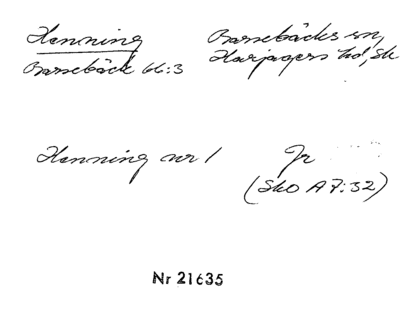 Henning
Barsebäck 66:3
Barsebäcks sn,
Harjagers hd, Sk
Henning nr 1
Jr
(Sko A7:32)
Nr 21635